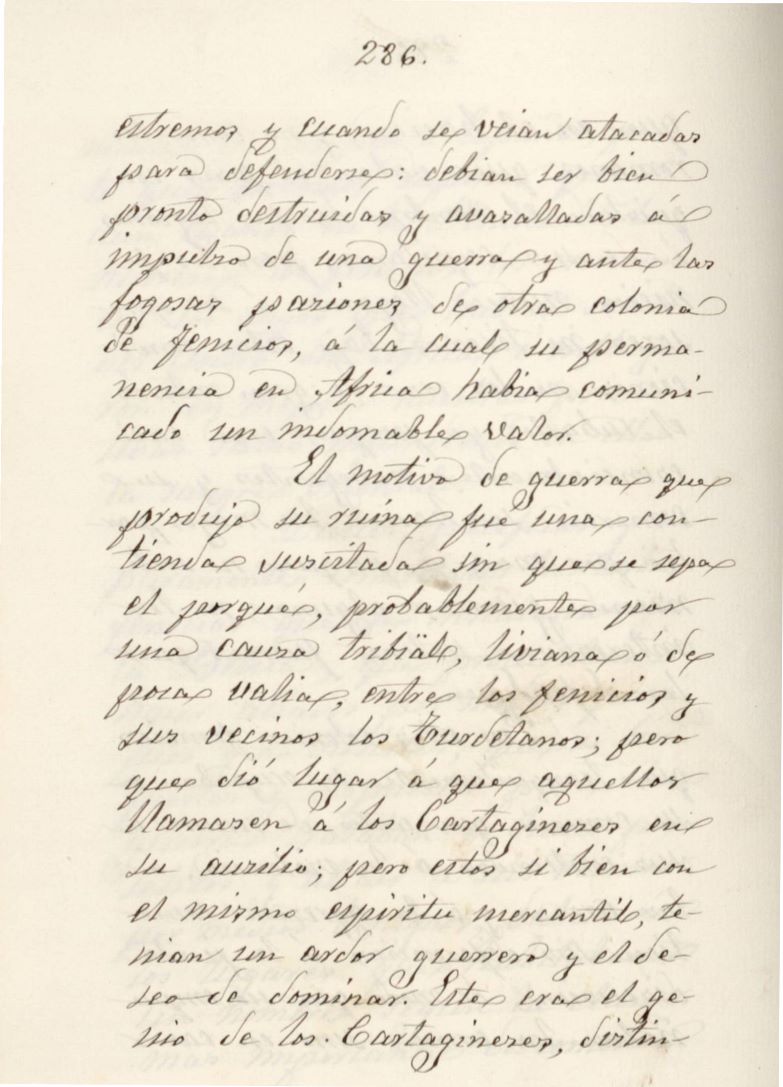 286.
estremos y cuando se veian atacadas
para defenderse: debian ser bien
pronto destruidas y avasalladas á
impulso de una guerra y ante las
fogosas pasiones de otra colonia
de Fenicios, á la cual su perma-
nencia en Africa habia comuni-
cado un indomable valor.
El motivo de guerra que
produjo su ruina fué una con-
tienda suscitada sin que se sepa
el porqué, probablemente por
una causa tribiäl, liviana ó de
poca valia, entre los fenicios y
sus vecinos los Turdetanos; pero
que dió lugar á que aquellos
llamasen á los Cartagineses en
su ausilio; pero estos si bien con
el mismo espiritu mercantil, te-
nian un ardor guerrero y el de-
seo de dominar. Este era el ge-
nio de los. Cartagineses, distin-